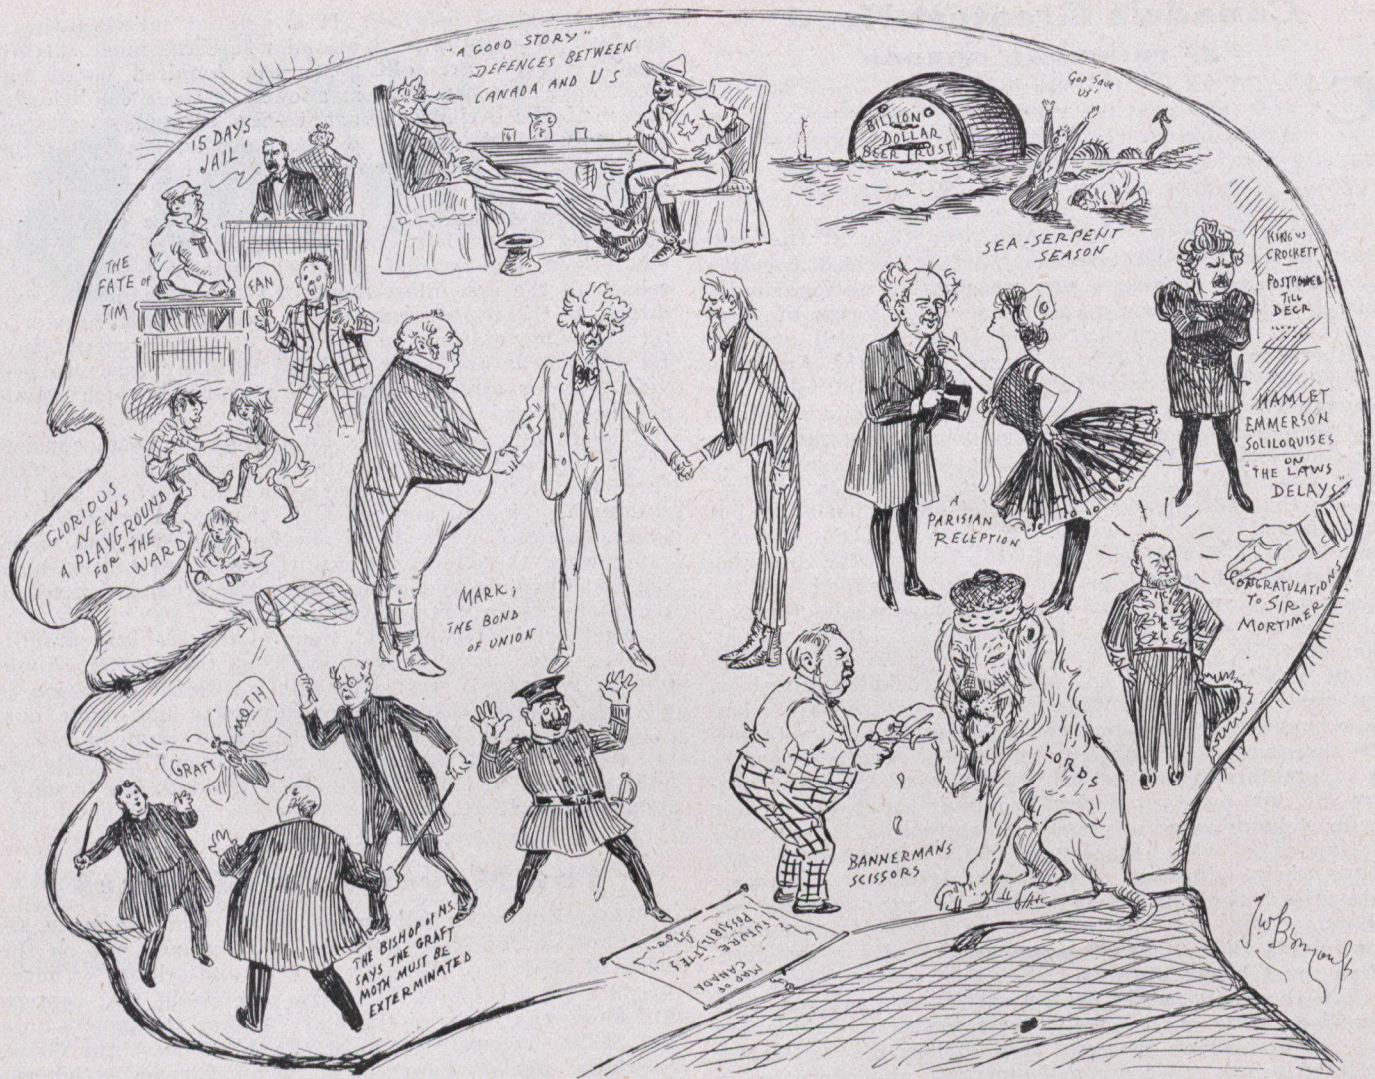 "A GOOD STORY"
DEFENCES BETWEEN
CANADA AND U S
15 DAYS
JAIL!
THE
FATE OF
TIM
FAN
BILLION
DOLLAR
BEER TRUST
GOD SAVE
US!
SEA-SERPENT
SEASON
KING VS
CROCKETT
POSTPONED
TILL
DECR
HAMLET
EMMERSON
SOLILOQUISES
ON
"THE LAWS
DELAYS"
GLORIOUS
NEWS
A PLAYGROUND
FOR "THE
WARD
MARK;
THE BOND
OF UNION
A
PARISIAN
RECEPTION
CONGRATULATIONS
TO SIR
MORTIMER
MOTH
GRAFT
THE BISHOP OF N.S.
SAYS THE GRAFT
MOTH MUST BE
EXTERMINATED
BANNERMANS
SCISSORS
LORDS
MAP OF
CANADA
FUTURE SITES